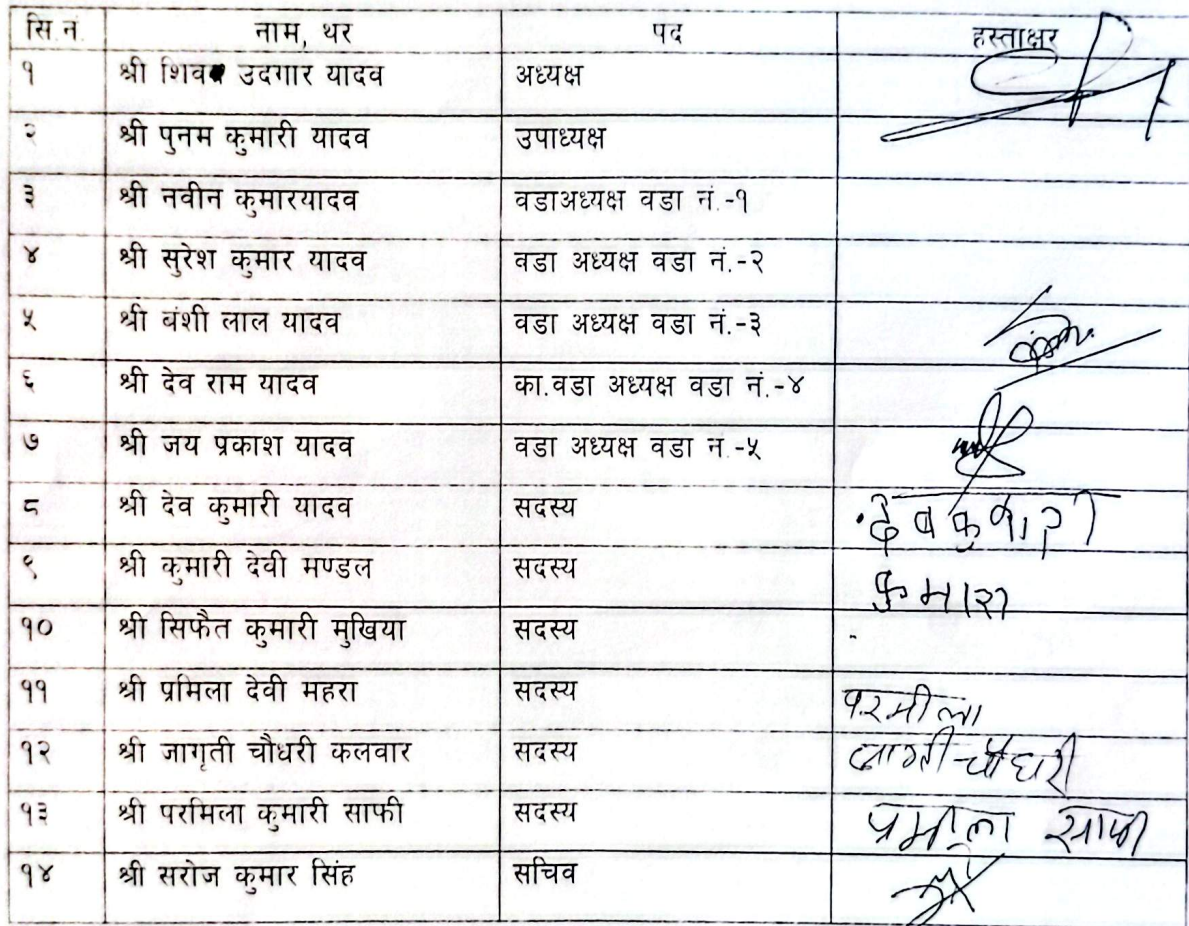 सि.नं. नाम, थर पद हस्ताक्षर
१ श्री शिव उदगार यादव अध्यक्ष
२ श्री पुनम कुमारी यादव उपाध्यक्ष
३ श्री नवीन कुमारयादव वडाअध्यक्ष वडा नं.-१
४ श्री सुरेश कुमार यादव वडा अध्यक्ष वडा नं.-२
५ श्री बंशी लाल यादव वडा अध्यक्ष वडा नं.-३
६ श्री देव राम यादव का.वडा अध्यक्ष वडा नं.-४
७ श्री जय प्रकाश यादव वडा अध्यक्ष वडा नं.-५
८ श्री देव कुमारी यादव सदस्य देव कुमारी
९ श्री कुमारी देवी मण्डल सदस्य कुमारी
१० श्री सिफैत कुमारी मुखिया सदस्य
११ श्री प्रमिला देवी महरा सदस्य परमीला
१२ श्री जागृती चौधरी कलवार सदस्य जागृती चौधरी
१३ श्री परमिला कुमारी साफी सदस्य प्रमीला साफी
१४ श्री सरोज कुमार सिंह सचिव